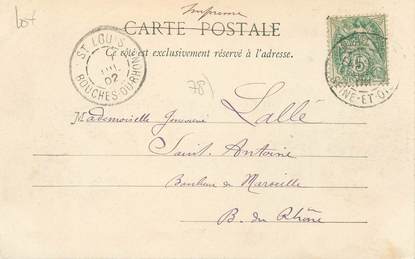 bot
Imprimé
CARTE POSTALE
Ce côté est exclusivement réservé à l'adresse.
ST LOUIS
7
JUIL
02
BOUCHES-DU-RHONE
5
SEINE-ET-O
78)
Mademoiselle Genevieve Lallé
Saint Antoine
Banlieue de Marseille
B. du Rhône